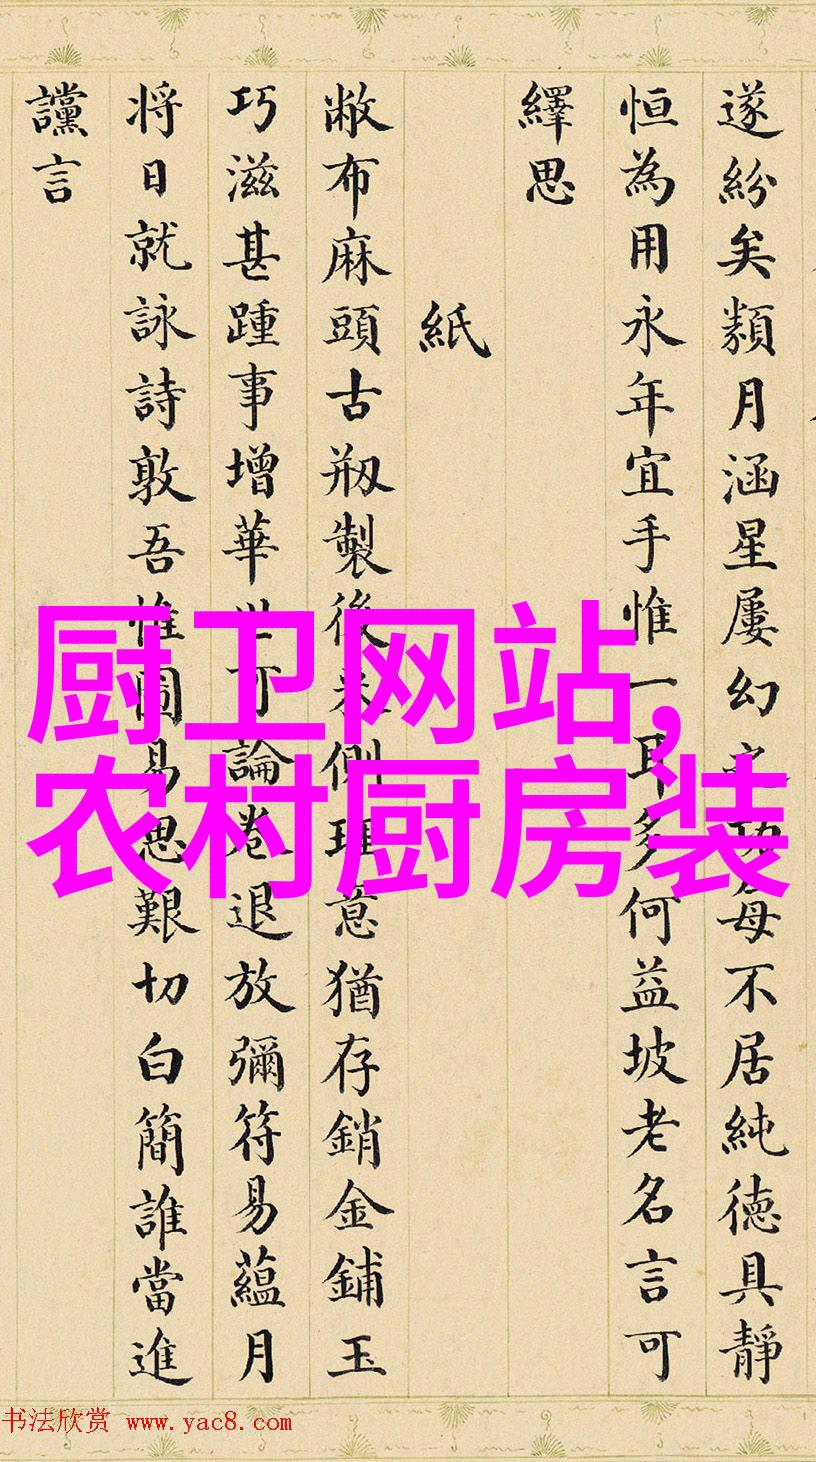 遂紛矣類月涵星屡幻之功每不居純德具靜
恒為用永年宜手惟一耳多何益坡老名言可
繹思
紙
敝布麻頭古剏製後来側理意猶存銷金鋪玉
巧滋甚踵事增華世可論卷退放彌符易蘊月
将日就詠詩敦吾惟圖易思艱切白簡誰當進
讜言
厨卫网站,
农村厨房装
书法欣赏 www.yac8.com